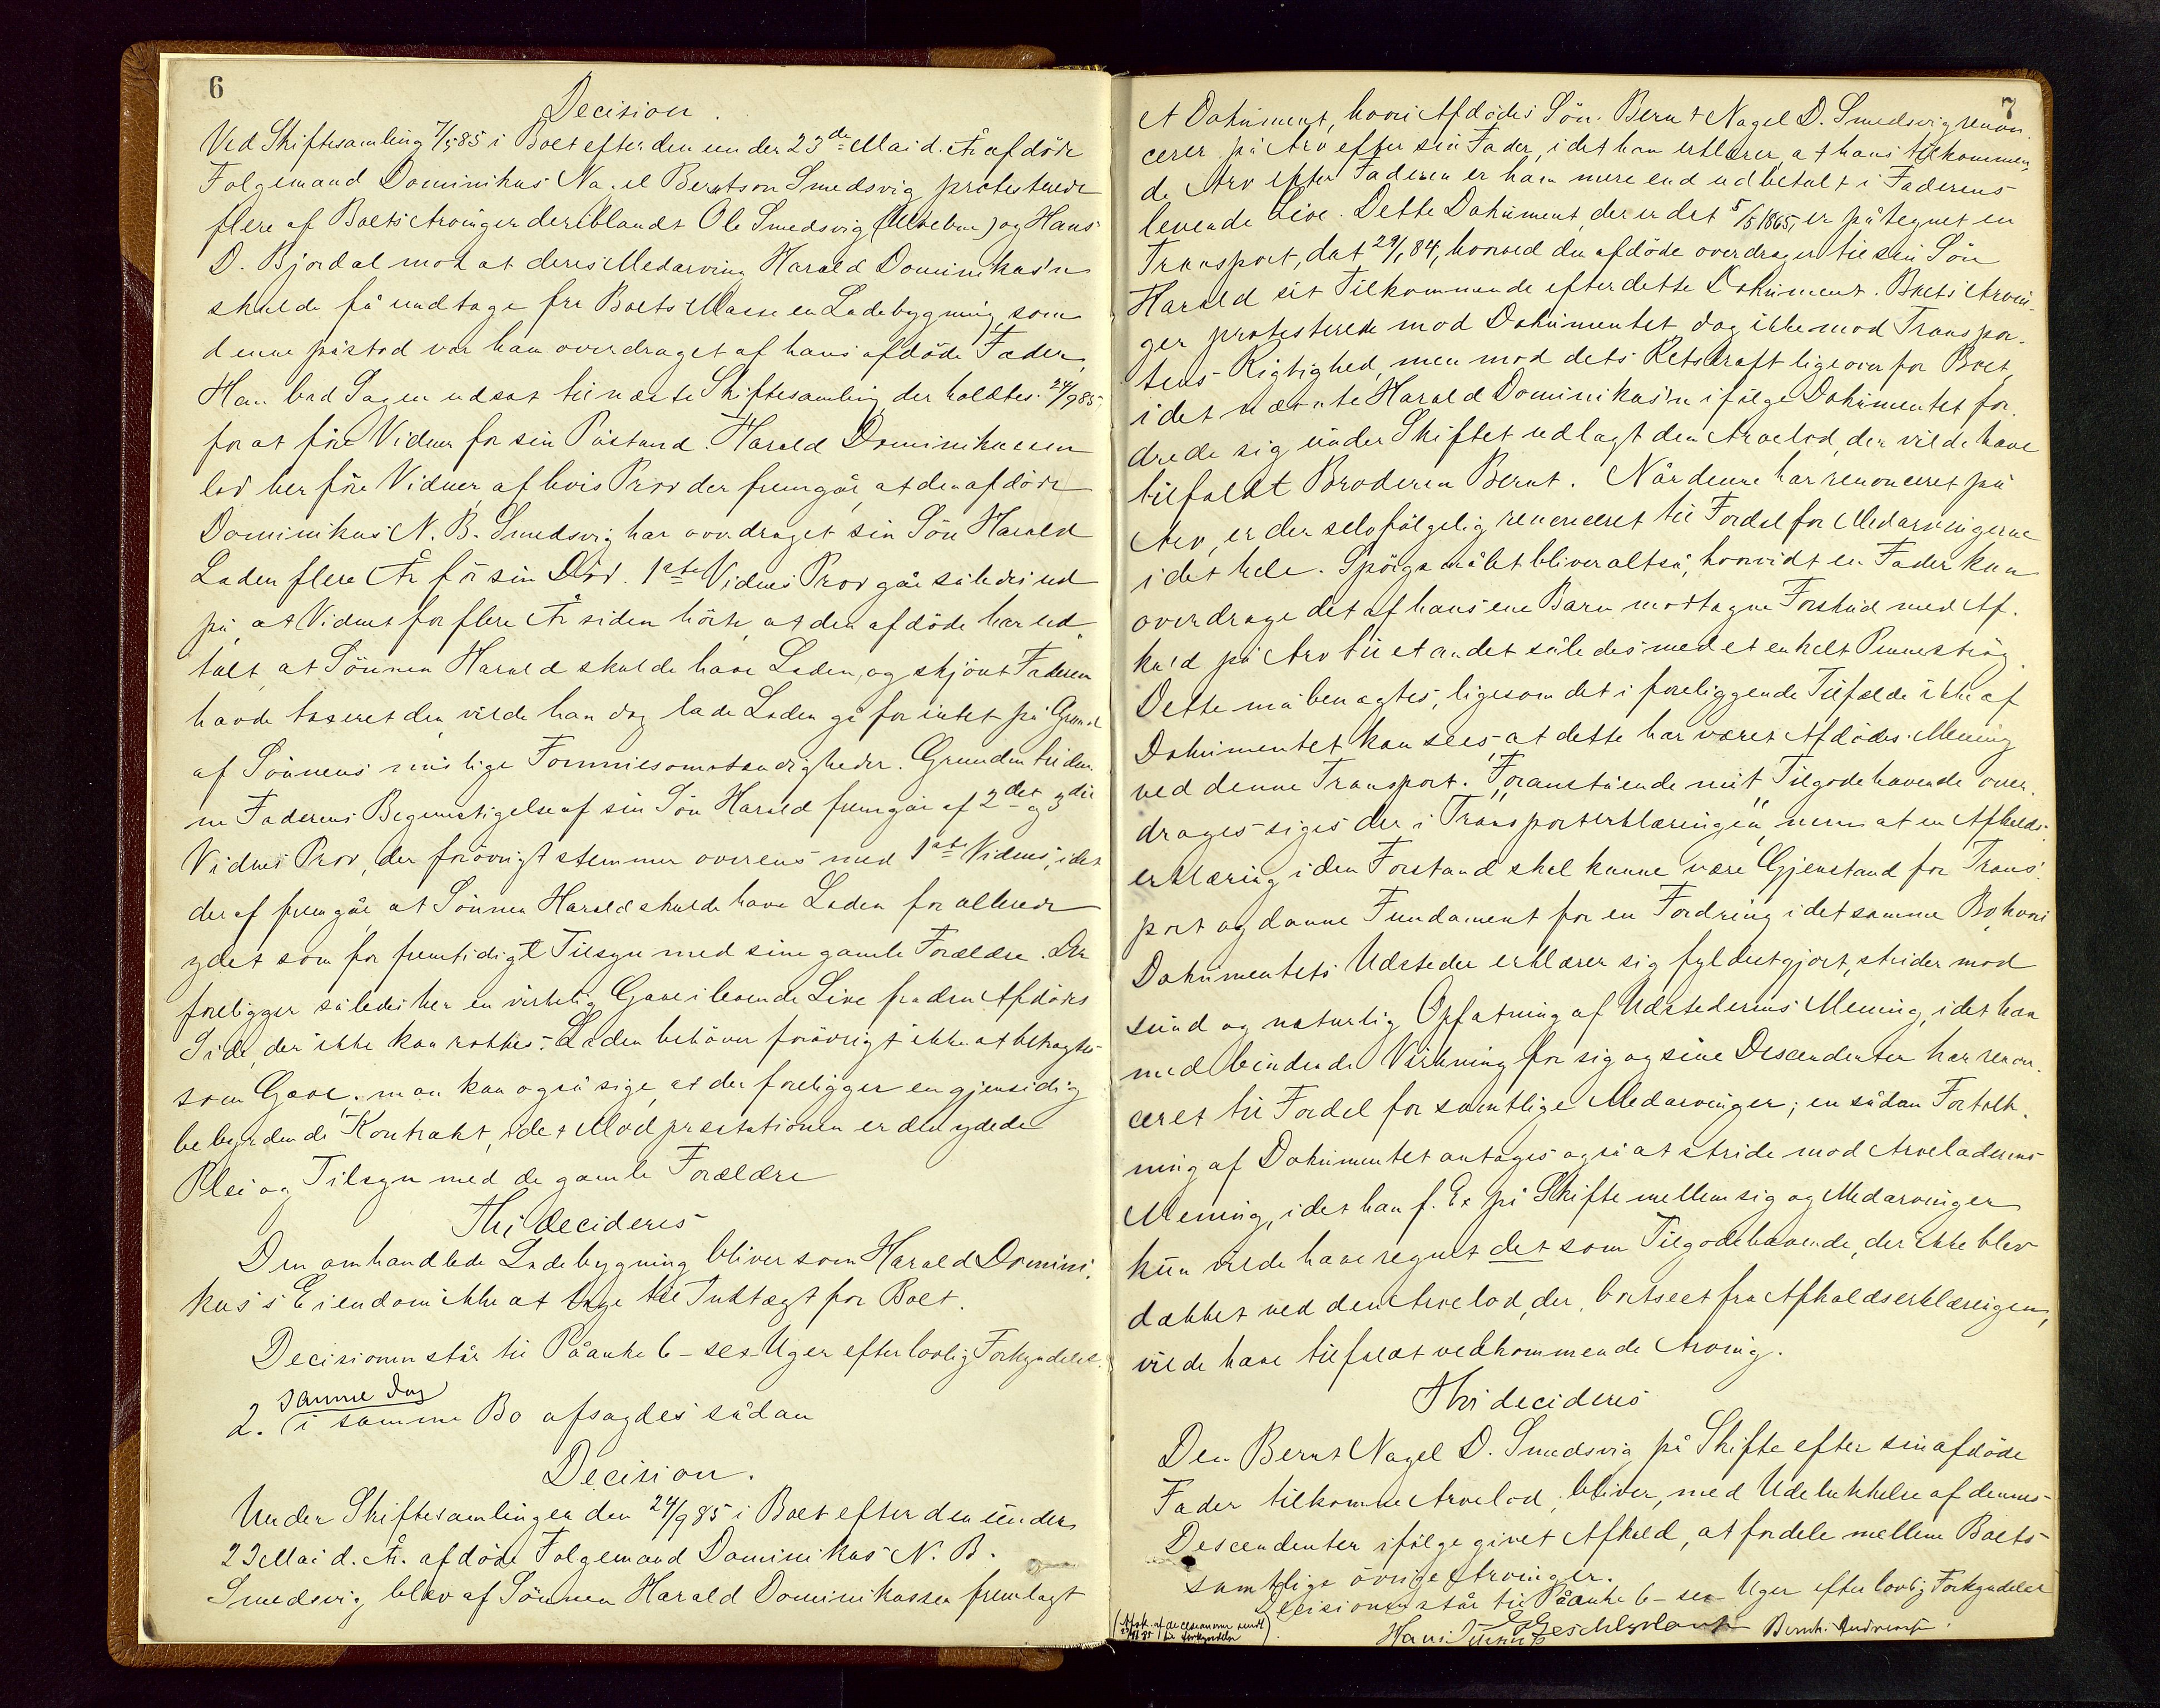 6
Decision.
Ved Skiftesamling 7/585 i Boet efter den under 23de Mai d. År afdöde
Folgemand Dominikus Nagel Berntson Smedsvig protesterede
flere af Boets Arvinger deriblandt Ole Smedsvig () og Hans
D. Bjordal mod at deres Medarving Harald Dominikas'n
skulde få undtage fra Boets Masse en Ladebygning, som
denne påstod var ham overdraget af hans afdöde Fader.
Han bad Sagen udsat til næste Skiftesamling, der holdtes 24/985,
for at före Vidner for sin Påstand. Harald Dominikassen
lod her före Vidner, af hvis Prov der fremgår, at den afdöde
Dominikus N. B. Smedsvig har overdraget sin Sön Harald
Laden flere År för sin Död. 1ste Vidnes Prov går således ud
på, at Vidnet for flere År siden hörte, at den afdöde har ud-
talt, at Sönnen Harald skulde have Laden, og skjönt Faderen
havde taxeret den, vilde han dog lade Laden gå for intet på Grund
af Sönnens Fommiesomstændigheder. Grunden til den-
ne Faderens Begunstigelse af sin Sön Harald fremgår af 2det og 3die
Vidnes Prov, der forövrigt stemmer overens med 1ste Vidnes, idet
deraf fremgår, at Sönnen Harald skulde have Laden for allerede
ydet som for fremtidigt Tilsyn med sine gamle Forældre. Der
foreligger således her en virkelig Gave i levende Live fra den Afdödes
Side, der ikke kan rokkes. Laden behöver forövrigt ikke at betragtes
som Gave; man kan også sige, at der foreligger en gjensidig
bebyrdende Kontrakt, idet Modpræstationen er den ydede
Pleie og Tilsyn med de gamle Forældre
Thi decideres
Den omhandlede Ladebygning bliver som Harald Domini-
kus's Eiendom ikke at tage til Indtægt for Boet.
Decisionen står til Påanke 6 - sex Uger efter lovlig Forkyndelse.
samme Dag
2. i samme Bo afsagdes sådan
Decision.
Under Skiftesamlingen den 24/985 i Boet efter den under
23 Mai d. År. afdöde Folgemand Dominikas N. B.
Smedsvig blev af Sönnen Harald Dominikassen fremlagt
7
et Dokument, hvori Afdödes Sön Bernt Nagel D. Smedsvig renon-
cerer på Arv efter sin Fader, idet han erklærer, at hans tilkommen-
de Arv efter Faderen er ham mere end udbetalt i Faderens
levende Live. Dette Dokument, der er dat 5/5 1865, er påtegnet en
Transport, dat 29/1 84, hvorved den afdöde overdrager til sin Sön
Harald sit Tilkommende efter dette Dokument. Boets Arvin-
ger protesterede mod Dokumentet, dog ikke mod Transpor-
tens Rigtighed, men mod dets Retskraft ligeoverfor Boet,
idet nævnte Harald Dominikas'n ifölge Dokumentet for-
drede sig under Skiftet udlagt den Arvelod, der vilde have
tilfaldt Broderen Bernt. Når denne har renonceret på
Arv, er der selvfölgelig renonceret til Fordel for Medarvingerne
i det hele. Spörgsmålet bliver altså, hvorvidt en Fader kan
overdrage det af hans ene Barn modtagne Forskud med Af-
kald på Arv til et andet således med et enkelt Penneströg.
Dette må benægtes, ligesom det i foreliggende Tilfælde ikke af
Dokumentet kan sees, at dette har været Afdödes Mening
ved denne Transport. "Foranstående mit Tilgodehavende over-
drages" siges der i Transporterklæringen, men at en Afkalds-
erklæring i den Forstand skal kunne være Gjenstand for Trans-
port og danne Fundament for en Fordring i det samme Bo, hvori
Dokumentets Udsteder erklærer sig fyldestgjort, strider mod
sund og naturlig Opfatning af Udstederens Mening, idet han
med bindende Virkning for sig og sine Descendenter har renon-
ceret til Fordel for samtlige Medarvinger; en sådan Fortolk-
ning af Dokumentet antages også at stride mod Arveladerens
Mening, idet han f. Ex på Skifte mellem sig og Medarvinger
kun vilde have regnet det som Tilgodehavende, der ikke blev
dækket ved den Arvelod, der, bortseet fra Afkaldserklæringen,
vilde have tilfaldt vedkommende Arving.
Thi decideres
Den Bernt Nagel D. Smedsvig på Skifte efter sin afdöde
Fader tilkomne Arvelod bliver, med Udelukkelse af dennes
Descendenter ifölge givet Afkald, at fordele mellem Boets
samtlige övrige Arvinger.
Decisionen står til Påanke 6 - sex Uger efter lovlig Forkyndelse
(Afsk. af decisionerne sendt
til forkyndelse)
Hans Bernh. Andreas